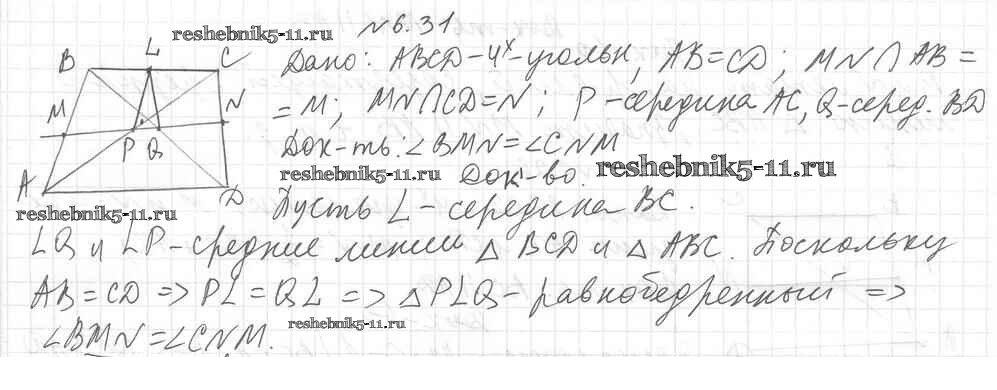 №6.31
reshebnik5-11.ru
B L C
M N
P Q
A D
Дано: ABCD-4х-угольн, AB=CD; MN∩AB=
=M; MN∩CD=N; P-середина AC, Q-серед. BD
Док-ть: ∠BMN=∠CNM
reshebnik5-11.ru Док-во. reshebnik5-11.ru
reshebnik5-11.ru
Пусть L-середина BC.
LQ и LP-средние линии △ BCD и △ ABC. Поскольку
AB=CD => PL=QL => △PLQ-равнобедренный =>
reshebnik5-11.ru
∠BMN=∠CNM.